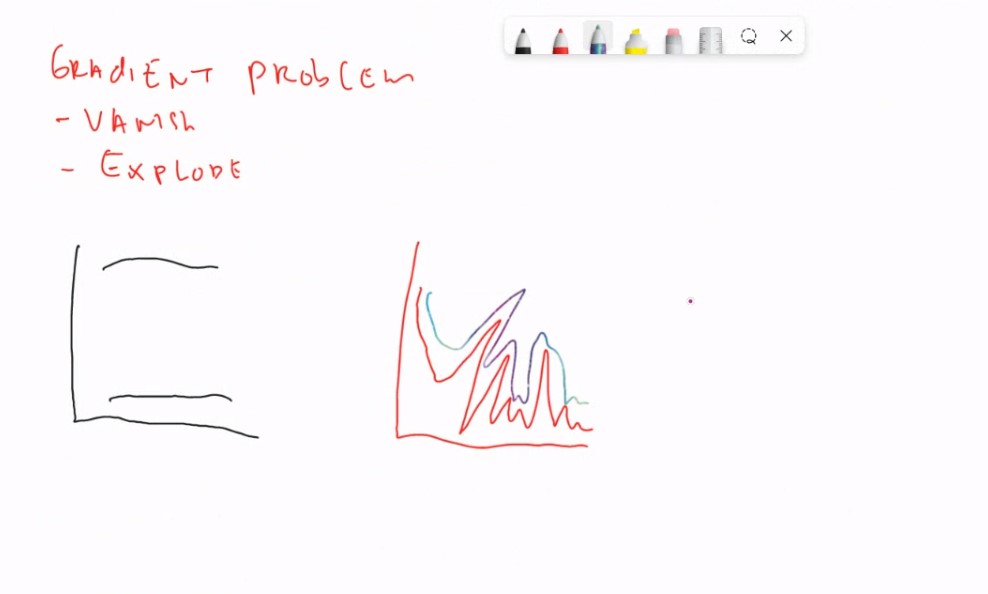 GRADIENT PROBLEM
- VANISH
- EXPLODE